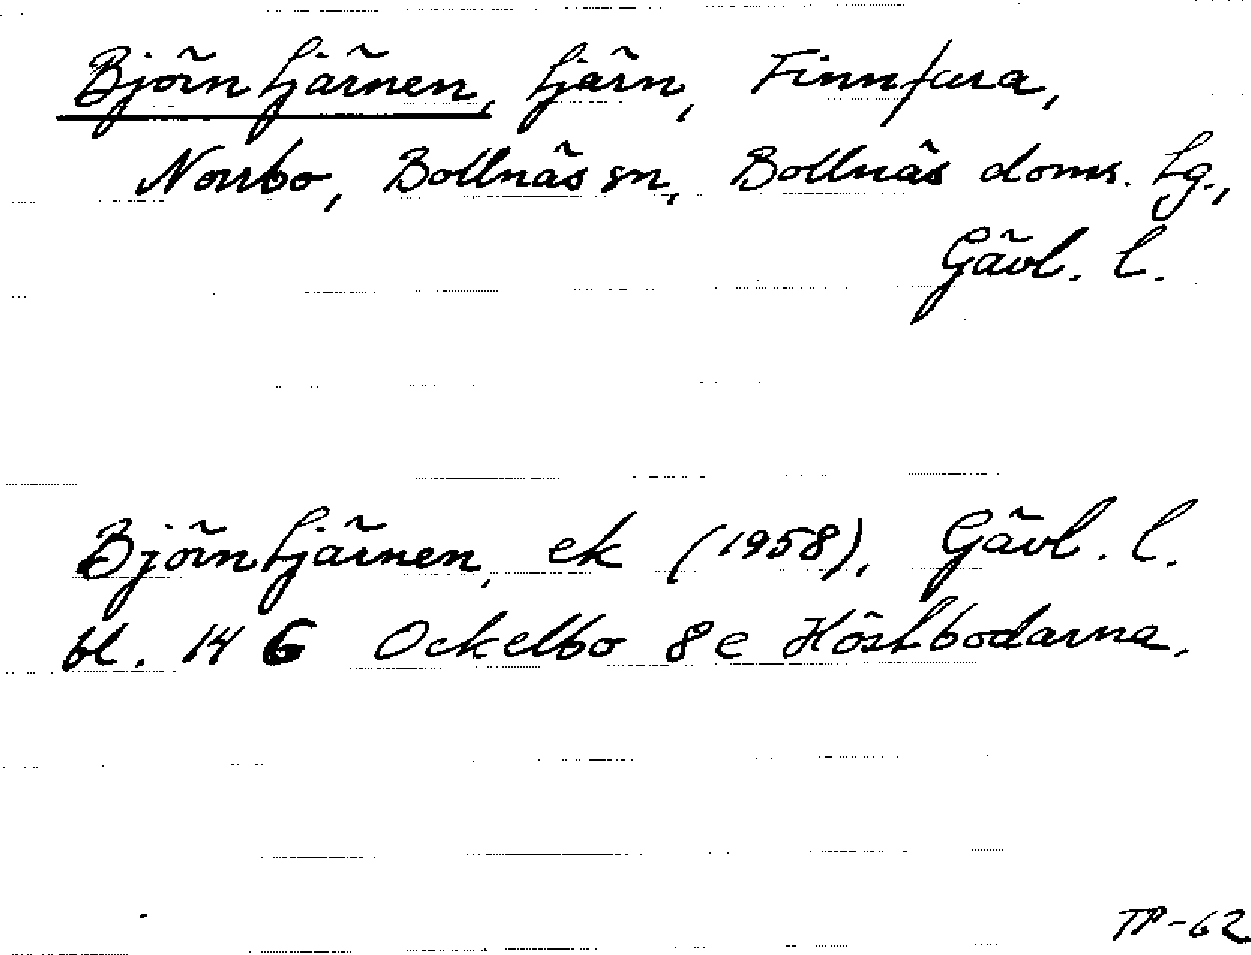 Björntjärnen, tjärn, Finnfara,
Norrbo, Bollnäs sn, Bollnäs doms. tg.,
Gävl. l.
Björntjärnen, ek (1958), Gävl. l.
bl. 14 G Ockelbo 8 e Höstbodarna.
TP-62